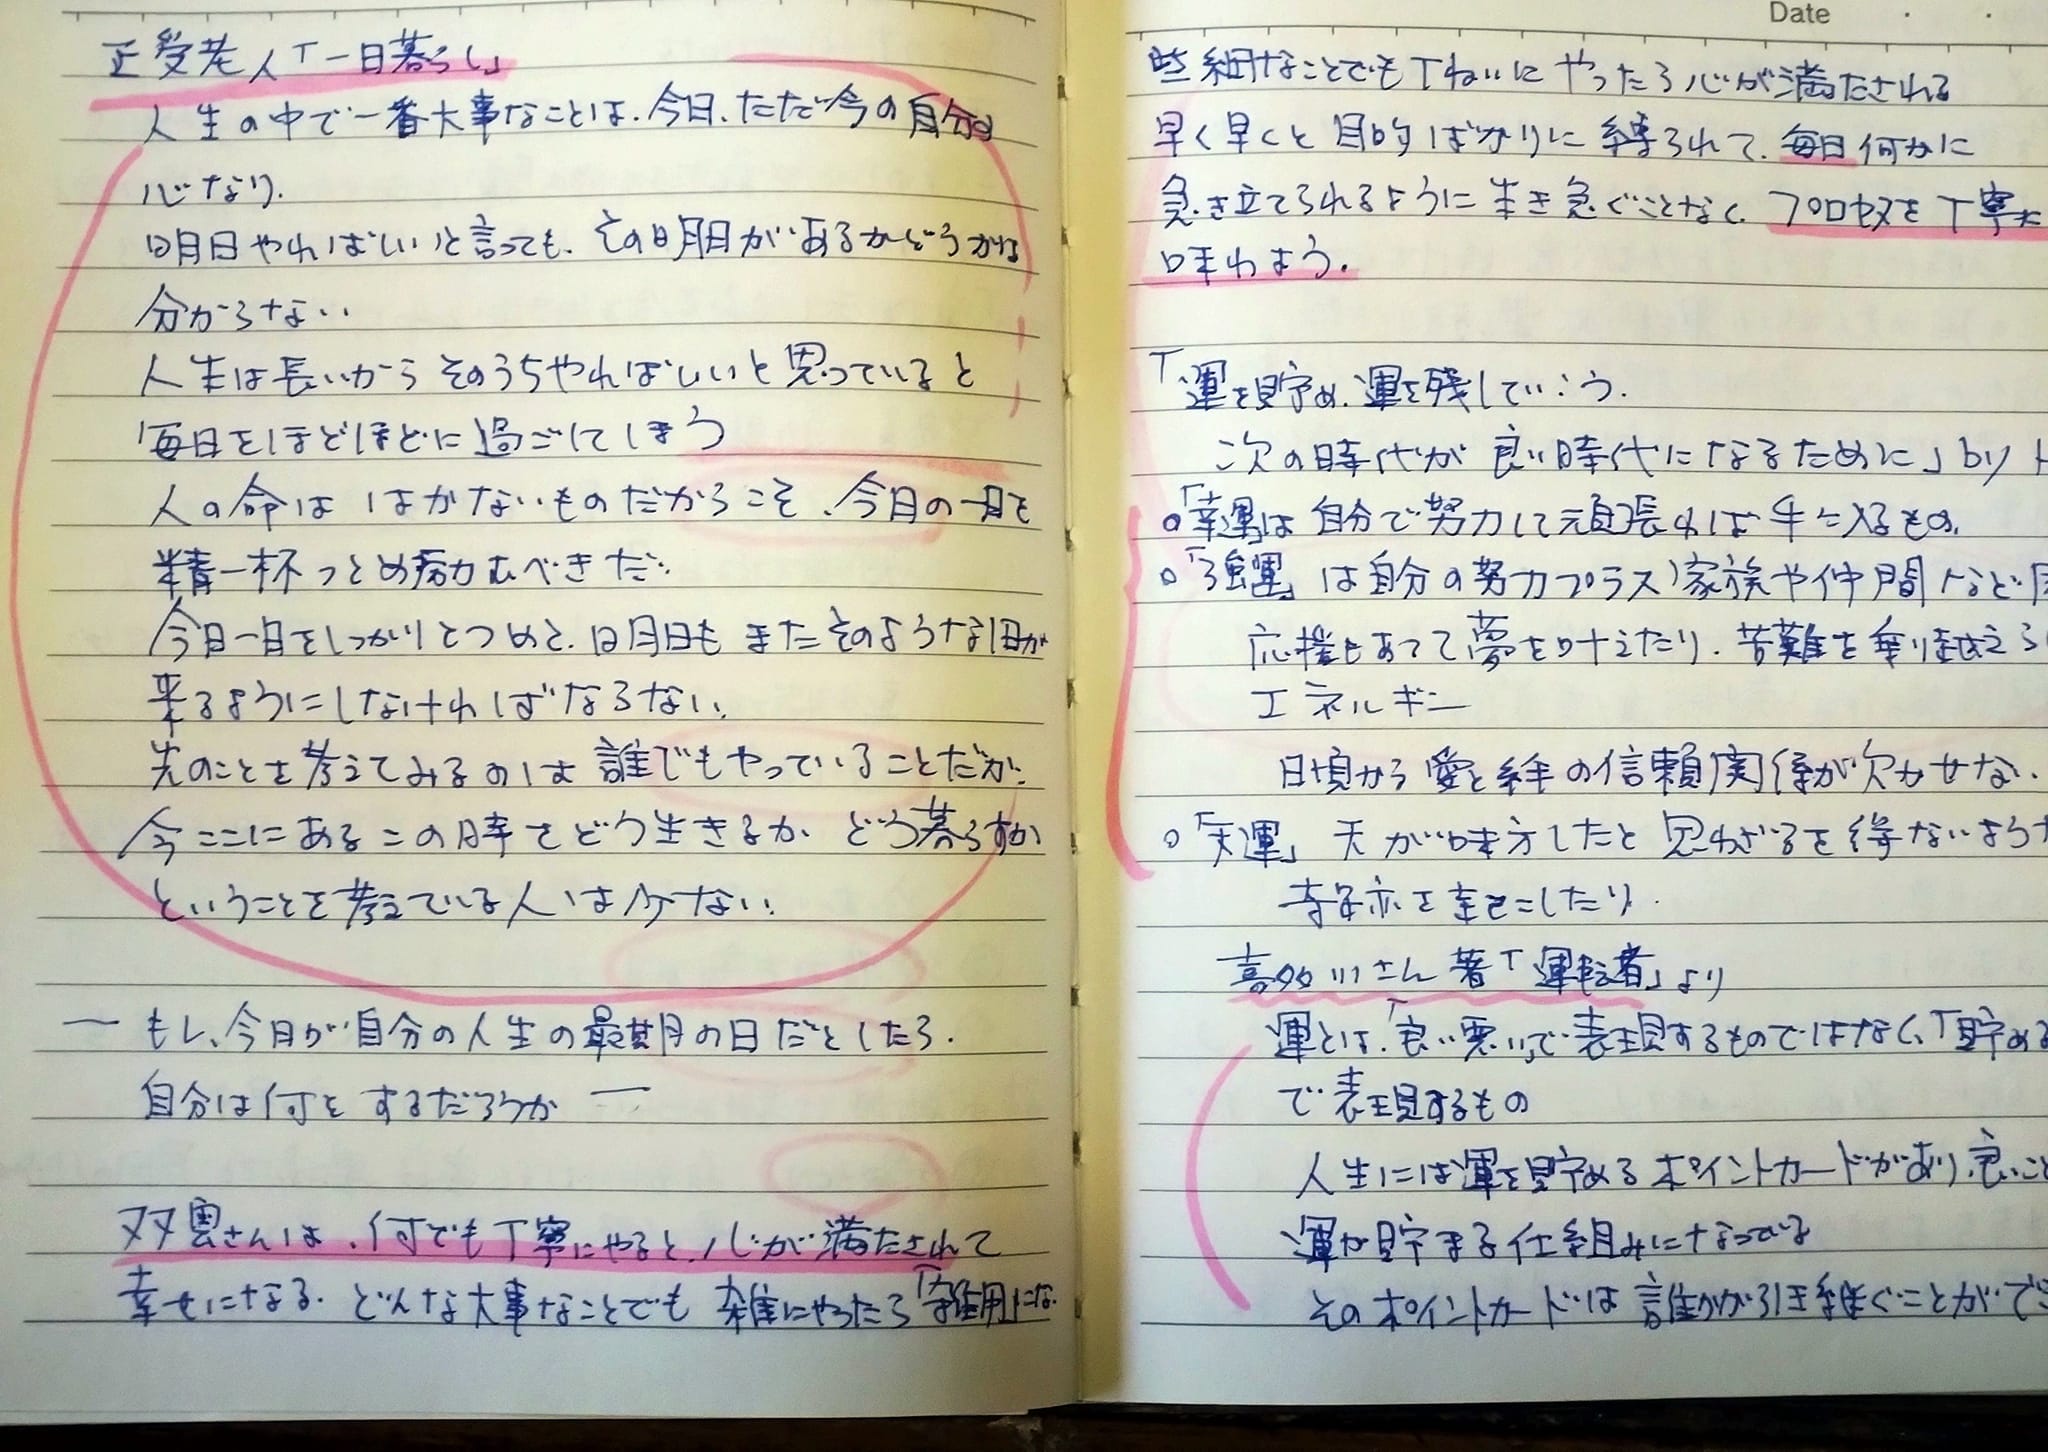 正受老人「一日暮らし」
人生の中で一番大事なことは、今日、ただ今の自分の
心なり。
明日やればいいと言っても、その明日があるかどうかは
分からない
人生は長いからそのうちやればいいと思っていると
毎日をほどほどに過ごしてしまう
人の命は はかないものだからこそ、今日の一日を
精一杯つとめ励むべきだ。
今日一日をしっかりとつめと、明日も またそのような1日が
来るようにしなければならない。
先のことを考えてみるのは 誰でもやっていることだが、
今ここにあるこの時をどう生きるか どう暮らすか
ということを考えている人は少ない。
― もし、今日が自分の人生の最期の日だとしたら、
自分は何をするだろうか ―
双雲さんは、何でも丁寧にやると、心が満たされて
幸せになる。どんな大事なことでも 雑にやったら「雑用」にな
些細なことでもていねいに やったら心が満たされる
早く早くと目的ばかりに縛られて、毎日何かに
急き立てられるように生き急ぐことなく、プロセスを丁寧に
味わおう。
「運を貯め、運を残していこう。
次の時代が 良い時代になるために」by
○「幸運」は 自分で努力して頑張れば手に入るもの。
○「強運」は自分の努力プラス家族や仲間など周
応援もあって夢を叶えたり、苦難を乗り越える
エネルギー
日頃から愛と絆の信頼関係が欠かせない。
○「天運」 天が味方したと思わざるを得ないような
奇跡を起こしたり。
喜多川さん著「運転者」より
運とは、「良い悪い」で表現するものではなく、「貯める
で表現するもの
人生には運を貯めるポイントカードがあり、良いこと
運が貯まる仕組みになっている
そのポイントカードは誰かが引き継ぐことがで